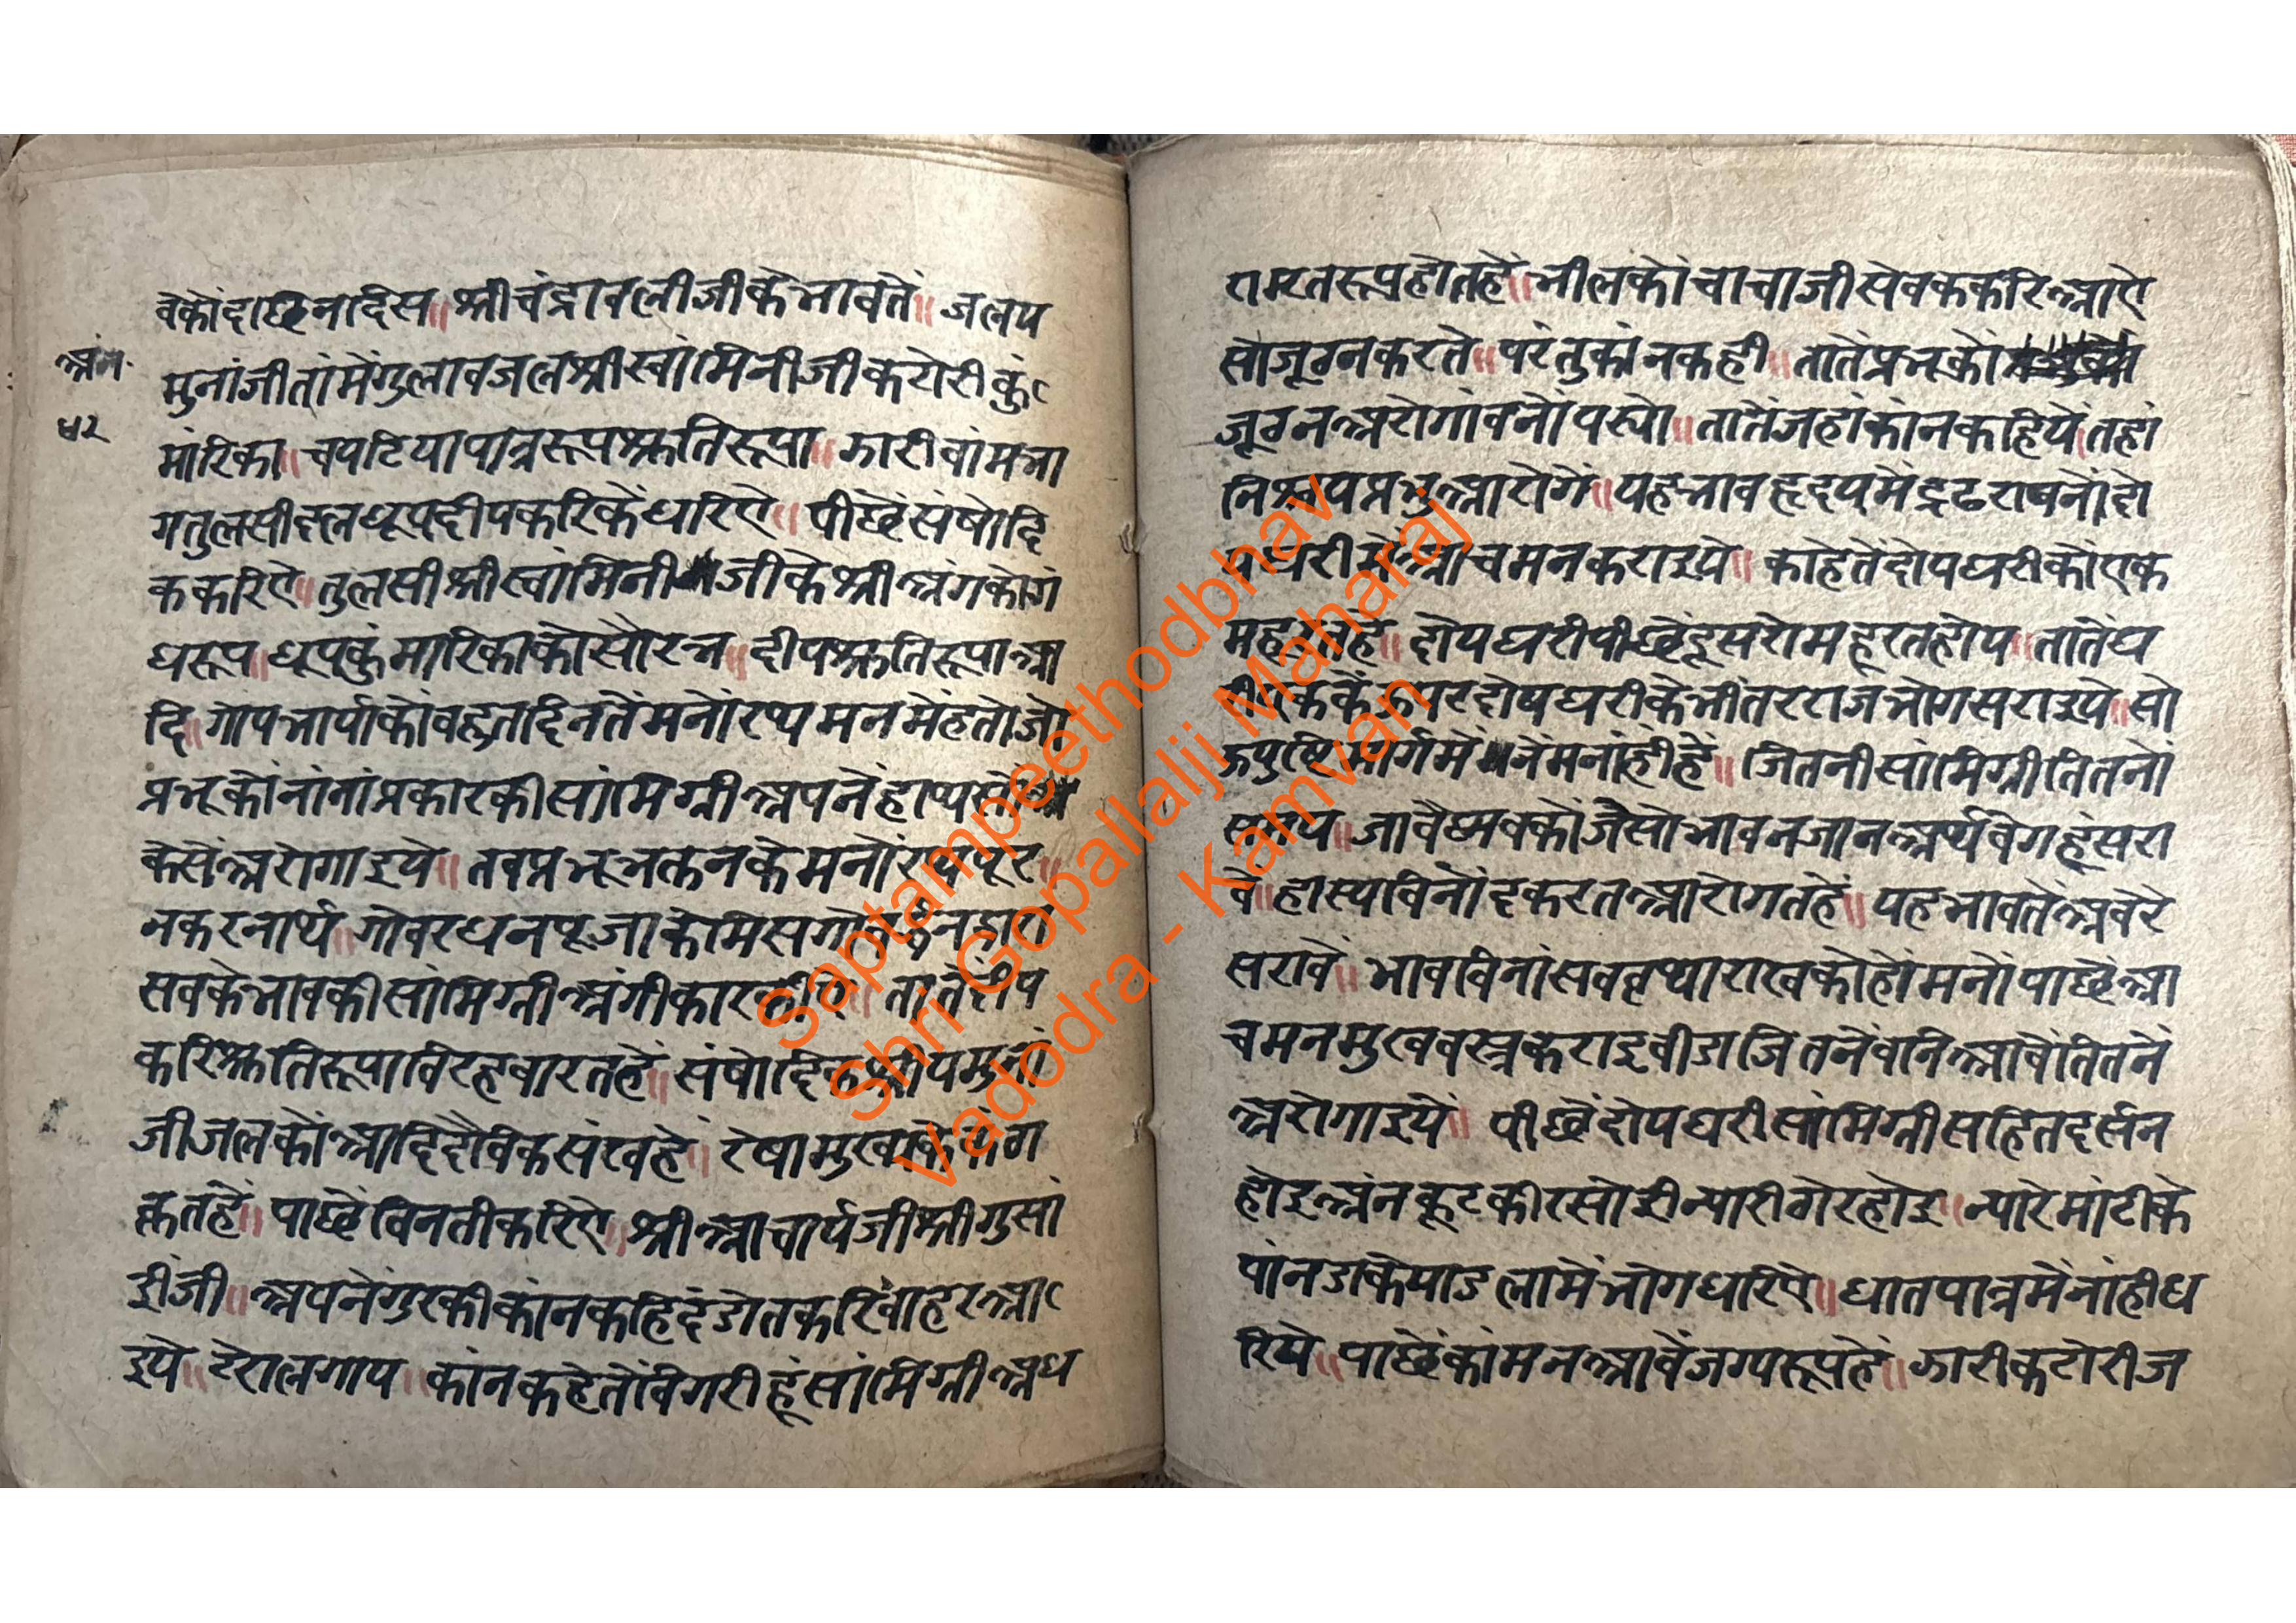 वेकोंदाछिनादिस॥श्रीचंद्रावलीजीकेभावतें॥जलप
मुनांजीतांमेंगुलावजलश्रीस्वांमिनीजीकटोरीकुं
मांरिका॥चपटियापात्ररूपश्रुतिरूपा॥झारीवांमभा
गतुलसीदलधूपदीपकरिकेंधरिऐ॥पीछेंसंषोदि
ककरिऐ॥तुलसीश्रीस्वांमिनीजीकेश्रीअंगकोगं
धरूप॥धूपकुंमारिकाकोसौरभ॥दीपश्रुतिरूपाआ
दि॥गोपभार्याकोंवहुतदिनतेंमनोरथमनमेंहतोजो
प्रभूकोंनांनांप्रकारकीसांमिग्रीअपनेंहाथसों
केसेंअरोगाइये॥तवप्रभूभक्तनकेमनोरथपूर॥
नकरनार्थ॥गोवरधनपूजाकेमिस
सवकेभावकीसांमिग्रीअंगीकार तातेंदीप
करिश्रुतिरूपाविरहवारतहें॥संषोदिक
जीजलकोंआदिदैविकसंखहे॥रेषामुख
क्रतहें॥पाछेंविनतीकरिऐ॥श्रीआचार्यजीश्रीगुसां
ईंजी॥अपनेंगुरकीकांनकहिदंडोतकरिवाहरआ
इये॥टेरालगाय॥कांनकहेतोंविगरीहूंसांमिग्रीअध
अंन
४२
रामरतरूपहोतहें॥भीलकोंचाचाजीसेवककरिआऐ
सोजूठनकरते॥परंतुकांनकही॥तातेंप्रभूकों
जूठनअरोगांवनोंपरयो॥तातेंजहांकांनकहिये॥तहां
निश्चयप्रभुआरोगें॥यहभावहृदयमेंद्रढराषनोंदो
यघरीमेंआचमनकराइये॥काहेतेंदोयघरीकोंएक
महूरतहे॥दोयघरीपीछेंदूसरोमहूरतहोय॥तातेंघ
दोयघरीकेभीतरराजभोगसराइये॥सो
ऊपुष्टिमार्गमेंनेंमनांहीहें॥जितनीसांमिग्रीतितनो
समय॥जावैष्णवकोंजैसोभावनजानअर्थवेगहूंसरा
वे॥हास्यविनोंदकरतआरोगतहें॥यहभावतेंअवेरे
सरावें॥भावविनांसवव्रथाराखकोहोंमनोंपाछेंआ
चमनमुखवस्त्रकराइवीडाजितनेंवनिआवेंतितनें
अरोगाइयें॥पीछेंदोयघरीसांमिग्रीसहितदर्सन
होइअंनकूटकीरसोईन्यारीठोरहोइ॥न्यारेमांटीके
पांनडाकेयाडलामेंभोगधरिऐ॥धातपात्रमेंनांहीध
रिये॥पाछेंकांमनआवेंजग्यरूपहें॥झारीकटोरीज